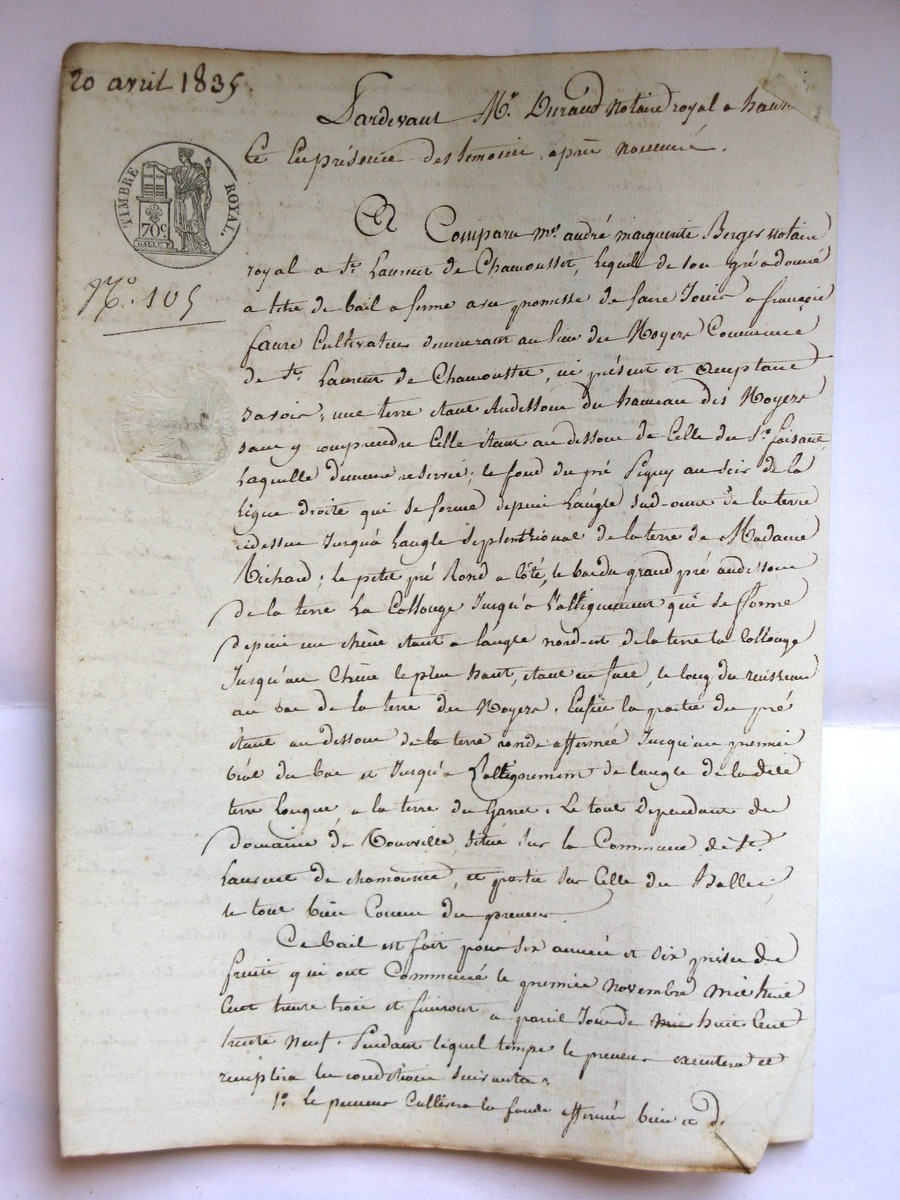 20 avril 1835.
Pardevant Me. Durand Notaire royal a haute
Et En présence des temoins après nommé.
TIMBRE ROYAL.
70c.
No. 105
A Comparu me. andré marguerite Berger notaire
royal a St. Laurent de Chamousset, lequel de son gré a donné
a titre de bail a ferme avec promesse de faire Jouir a françois
faure Cultivateur demeurant au lieu du Noyers Commune
de St. Laurent de Chamousset, ici présent et acceptant
savoir; une terre etant Audessous du hameau des Noyers
sans y comprendre Celle étant au dessous de Celle du Sr.
Laquelle demeure reservée; le fond du pré Piguy au soir de la
Ligne droite qui se forme depuis L'angle sud-ouest de la terre
cidessus Jusqu'a L'angle Septentrional de la terre de Madame
Richard; le petit pré Rond a Côté, le bas du grand pré audessous
de la terre La Collonge Jusqu'a L'allignement qui se forme
depuis un chêne etant a l'angle nord-est de la terre la Collonge
Jusqu'au Chêne le plus haut, etant en face, le long du ruisseau
au bas de la terre du Noyers. Enfin la partie du pré
étant au dessous de la terre ronde affermée Jusqu'au premier
biel du bas et Jusqu'a L'allignement de l'angle de la dite
terre longue, a la terre du Garet. Le tout dependant du
domaine de Tourville, situé sur la Commune de St.
Laurent de chamousset, et partie sur Celle du halles
le tout bien Connu du preneur.
Ce bail est fait pour six années et six prises de
fruits qui ont Commencé le premier novembre mil huit
Cent trente trois et finiront a pareil Jour de mil huit Cent
trente Neuf. Pendant lequel temps le preneur executera et
remplira les conditions suivantes.
1o. le preneur Cultivera les fonds affermés bien et d.